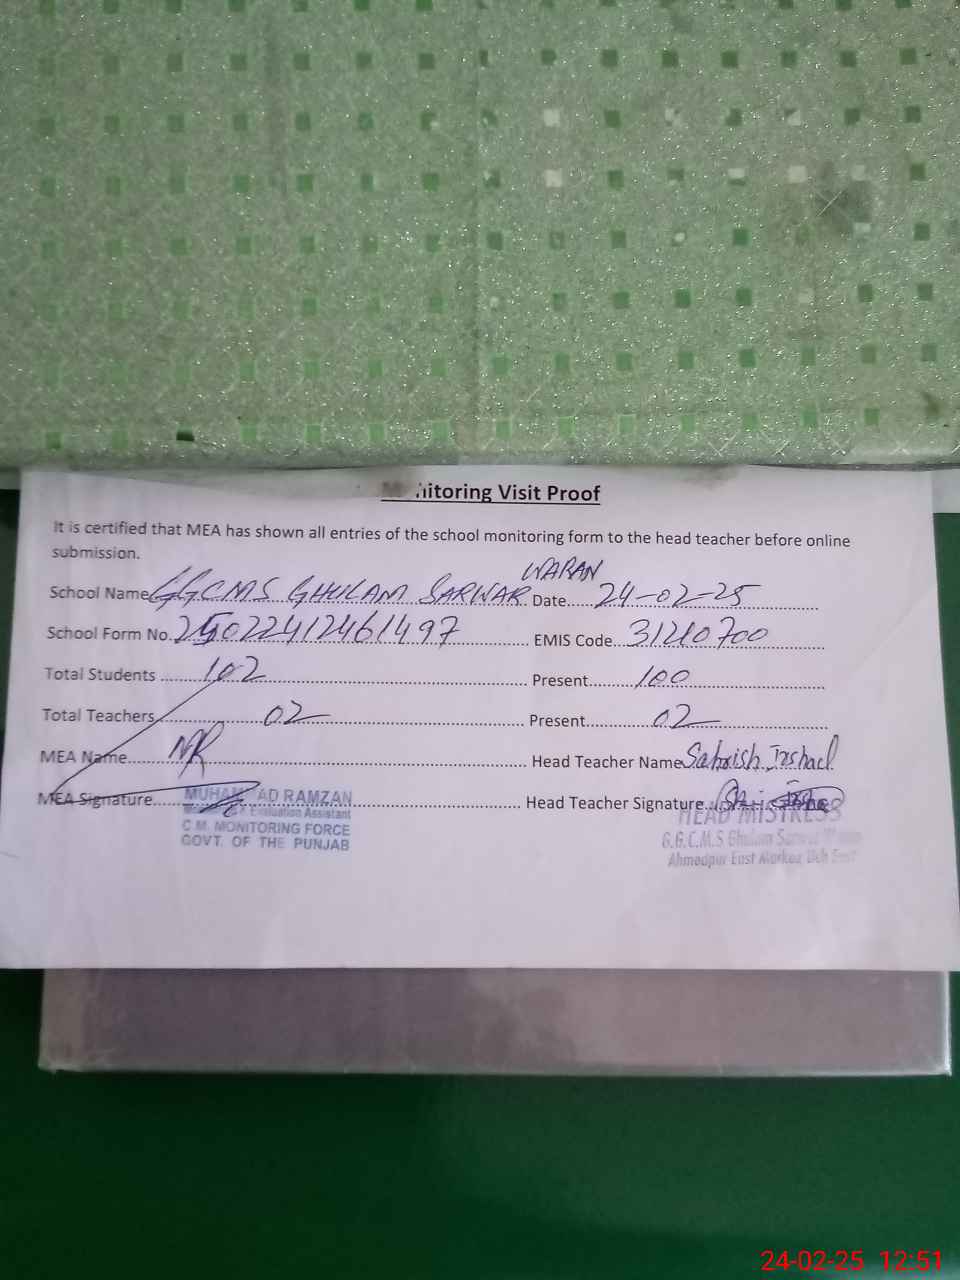 nitoring Visit Proof
It is certified that MEA has shown all entries of the school monitoring form to the head teacher before online
submission.
School Name GGCMS GHULAM SARWAR WARAN Date 24-02-25
School Form No. 25022412461497 EMIS Code 31210700
Total Students 102 Present 100
Total Teachers 02 Present 02
MEA Name MR Head Teacher Name Sahrish Irshad
MEA Signature Head Teacher Signature
MUHAMMAD RAMZAN
Evaluation Assistant
C.M. MONITORING FORCE
GOVT. OF THE PUNJAB
HEAD MISTRESS
G.G.C.M.S Ghulam Sarwar
Ahmedpur East Markaz Uch
24-02-25 12:51